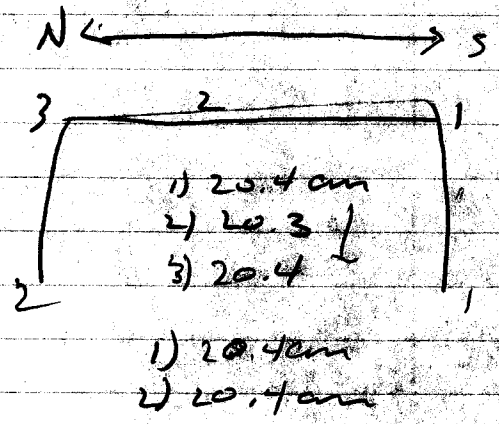 N S
3 2 1
1) 20.4 cm
2) 20.3
3) 20.4
2 1
1) 20.4 cm
2) 20.4 cm